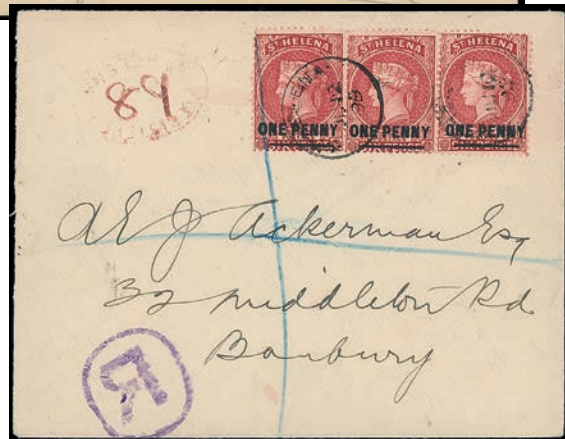 ST HELENA ST HELENA ST HELENA
ONE PENNY ONE PENNY ONE PENNY
89
A E J Ackerman Esq
32 Middleton Rd
Banbury
R